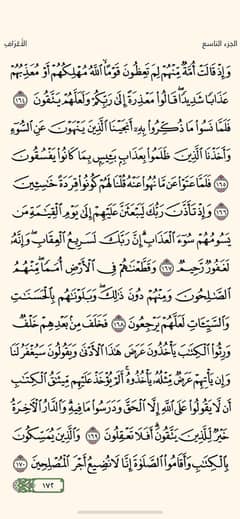 الجزء التاسع
الأعراف
وَإِذْ قَالَتْ أُمَّةٌ مِّنْهُمْ لِمَ تَعِظُونَ قَوْمًا ٱللَّهُ مُهْلِكُهُمْ أَوْ مُعَذِّبُهُمْ
عَذَابًا شَدِيدًا قَالُوا۟ مَعْذِرَةً إِلَىٰ رَبِّكُمْ وَلَعَلَّهُمْ يَتَّقُونَ ١٦٤
فَلَمَّا نَسُوا۟ مَا ذُكِّرُوا۟ بِهِۦٓ أَنجَيْنَا ٱلَّذِينَ يَنْهَوْنَ عَنِ ٱلسُّوٓءِ
وَأَخَذْنَا ٱلَّذِينَ ظَلَمُوا۟ بِعَذَابٍۭ بَـِٔيسٍۭ بِمَا كَانُوا۟ يَفْسُقُونَ
١٦٥ فَلَمَّا عَتَوْا۟ عَن مَّا نُهُوا۟ عَنْهُ قُلْنَا لَهُمْ كُونُوا۟ قِرَدَةً خَـٰسِـِٔينَ
١٦٦ وَإِذْ تَأَذَّنَ رَبُّكَ لَيَبْعَثَنَّ عَلَيْهِمْ إِلَىٰ يَوْمِ ٱلْقِيَـٰمَةِ مَن
يَسُومُهُمْ سُوٓءَ ٱلْعَذَابِ ۗ إِنَّ رَبَّكَ لَسَرِيعُ ٱلْعِقَابِ ۖ وَإِنَّهُۥ
لَغَفُورٌ رَّحِيمٌ ١٦٧ وَقَطَّعْنَـٰهُمْ فِى ٱلْأَرْضِ أُمَمًا ۖ مِّنْهُمُ
ٱلصَّـٰلِحُونَ وَمِنْهُمْ دُونَ ذَٰلِكَ ۖ وَبَلَوْنَـٰهُم بِٱلْحَسَنَـٰتِ
وَٱلسَّيِّـَٔاتِ لَعَلَّهُمْ يَرْجِعُونَ ١٦٨ فَخَلَفَ مِنۢ بَعْدِهِمْ خَلْفٌ
وَرِثُوا۟ ٱلْكِتَـٰبَ يَأْخُذُونَ عَرَضَ هَـٰذَا ٱلْأَدْنَىٰ وَيَقُولُونَ سَيُغْفَرُ لَنَا
وَإِن يَأْتِهِمْ عَرَضٌ مِّثْلُهُۥ يَأْخُذُوهُ ۚ أَلَمْ يُؤْخَذْ عَلَيْهِم مِّيثَـٰقُ ٱلْكِتَـٰبِ
أَن لَّا يَقُولُوا۟ عَلَى ٱللَّهِ إِلَّا ٱلْحَقَّ وَدَرَسُوا۟ مَا فِيهِ ۗ وَٱلدَّارُ ٱلْـَٔاخِرَةُ
خَيْرٌ لِّلَّذِينَ يَتَّقُونَ ۗ أَفَلَا تَعْقِلُونَ ١٦٩ وَٱلَّذِينَ يُمَسِّكُونَ
بِٱلْكِتَـٰبِ وَأَقَامُوا۟ ٱلصَّلَوٰةَ إِنَّا لَا نُضِيعُ أَجْرَ ٱلْمُصْلِحِينَ ١٧٠
١٧٢